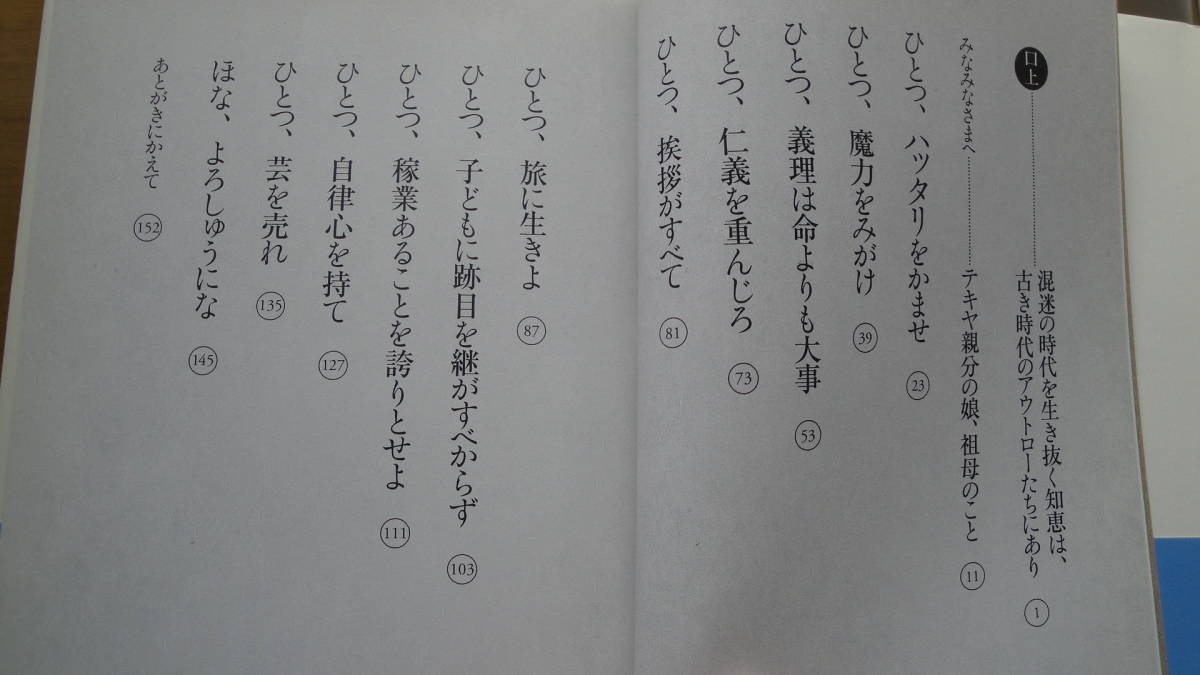 口上…………混迷の時代を生き抜く知恵は、
古き時代のアウトローたちにあり 1
みなみなさまへ…………テキヤ親分の娘、祖母のこと 11
ひとつ、ハッタリをかませ 23
ひとつ、魔力をみがけ 39
ひとつ、義理は命よりも大事 53
ひとつ、仁義を重んじろ 73
ひとつ、挨拶がすべて 81
ひとつ、旅に生きよ 87
ひとつ、子どもに跡目を継がすべからず 103
ひとつ、稼業あることを誇りとせよ 111
ひとつ、自律心を持て 127
ひとつ、芸を売れ 135
ほな、よろしゅうにな 145
あとがきにかえて 152